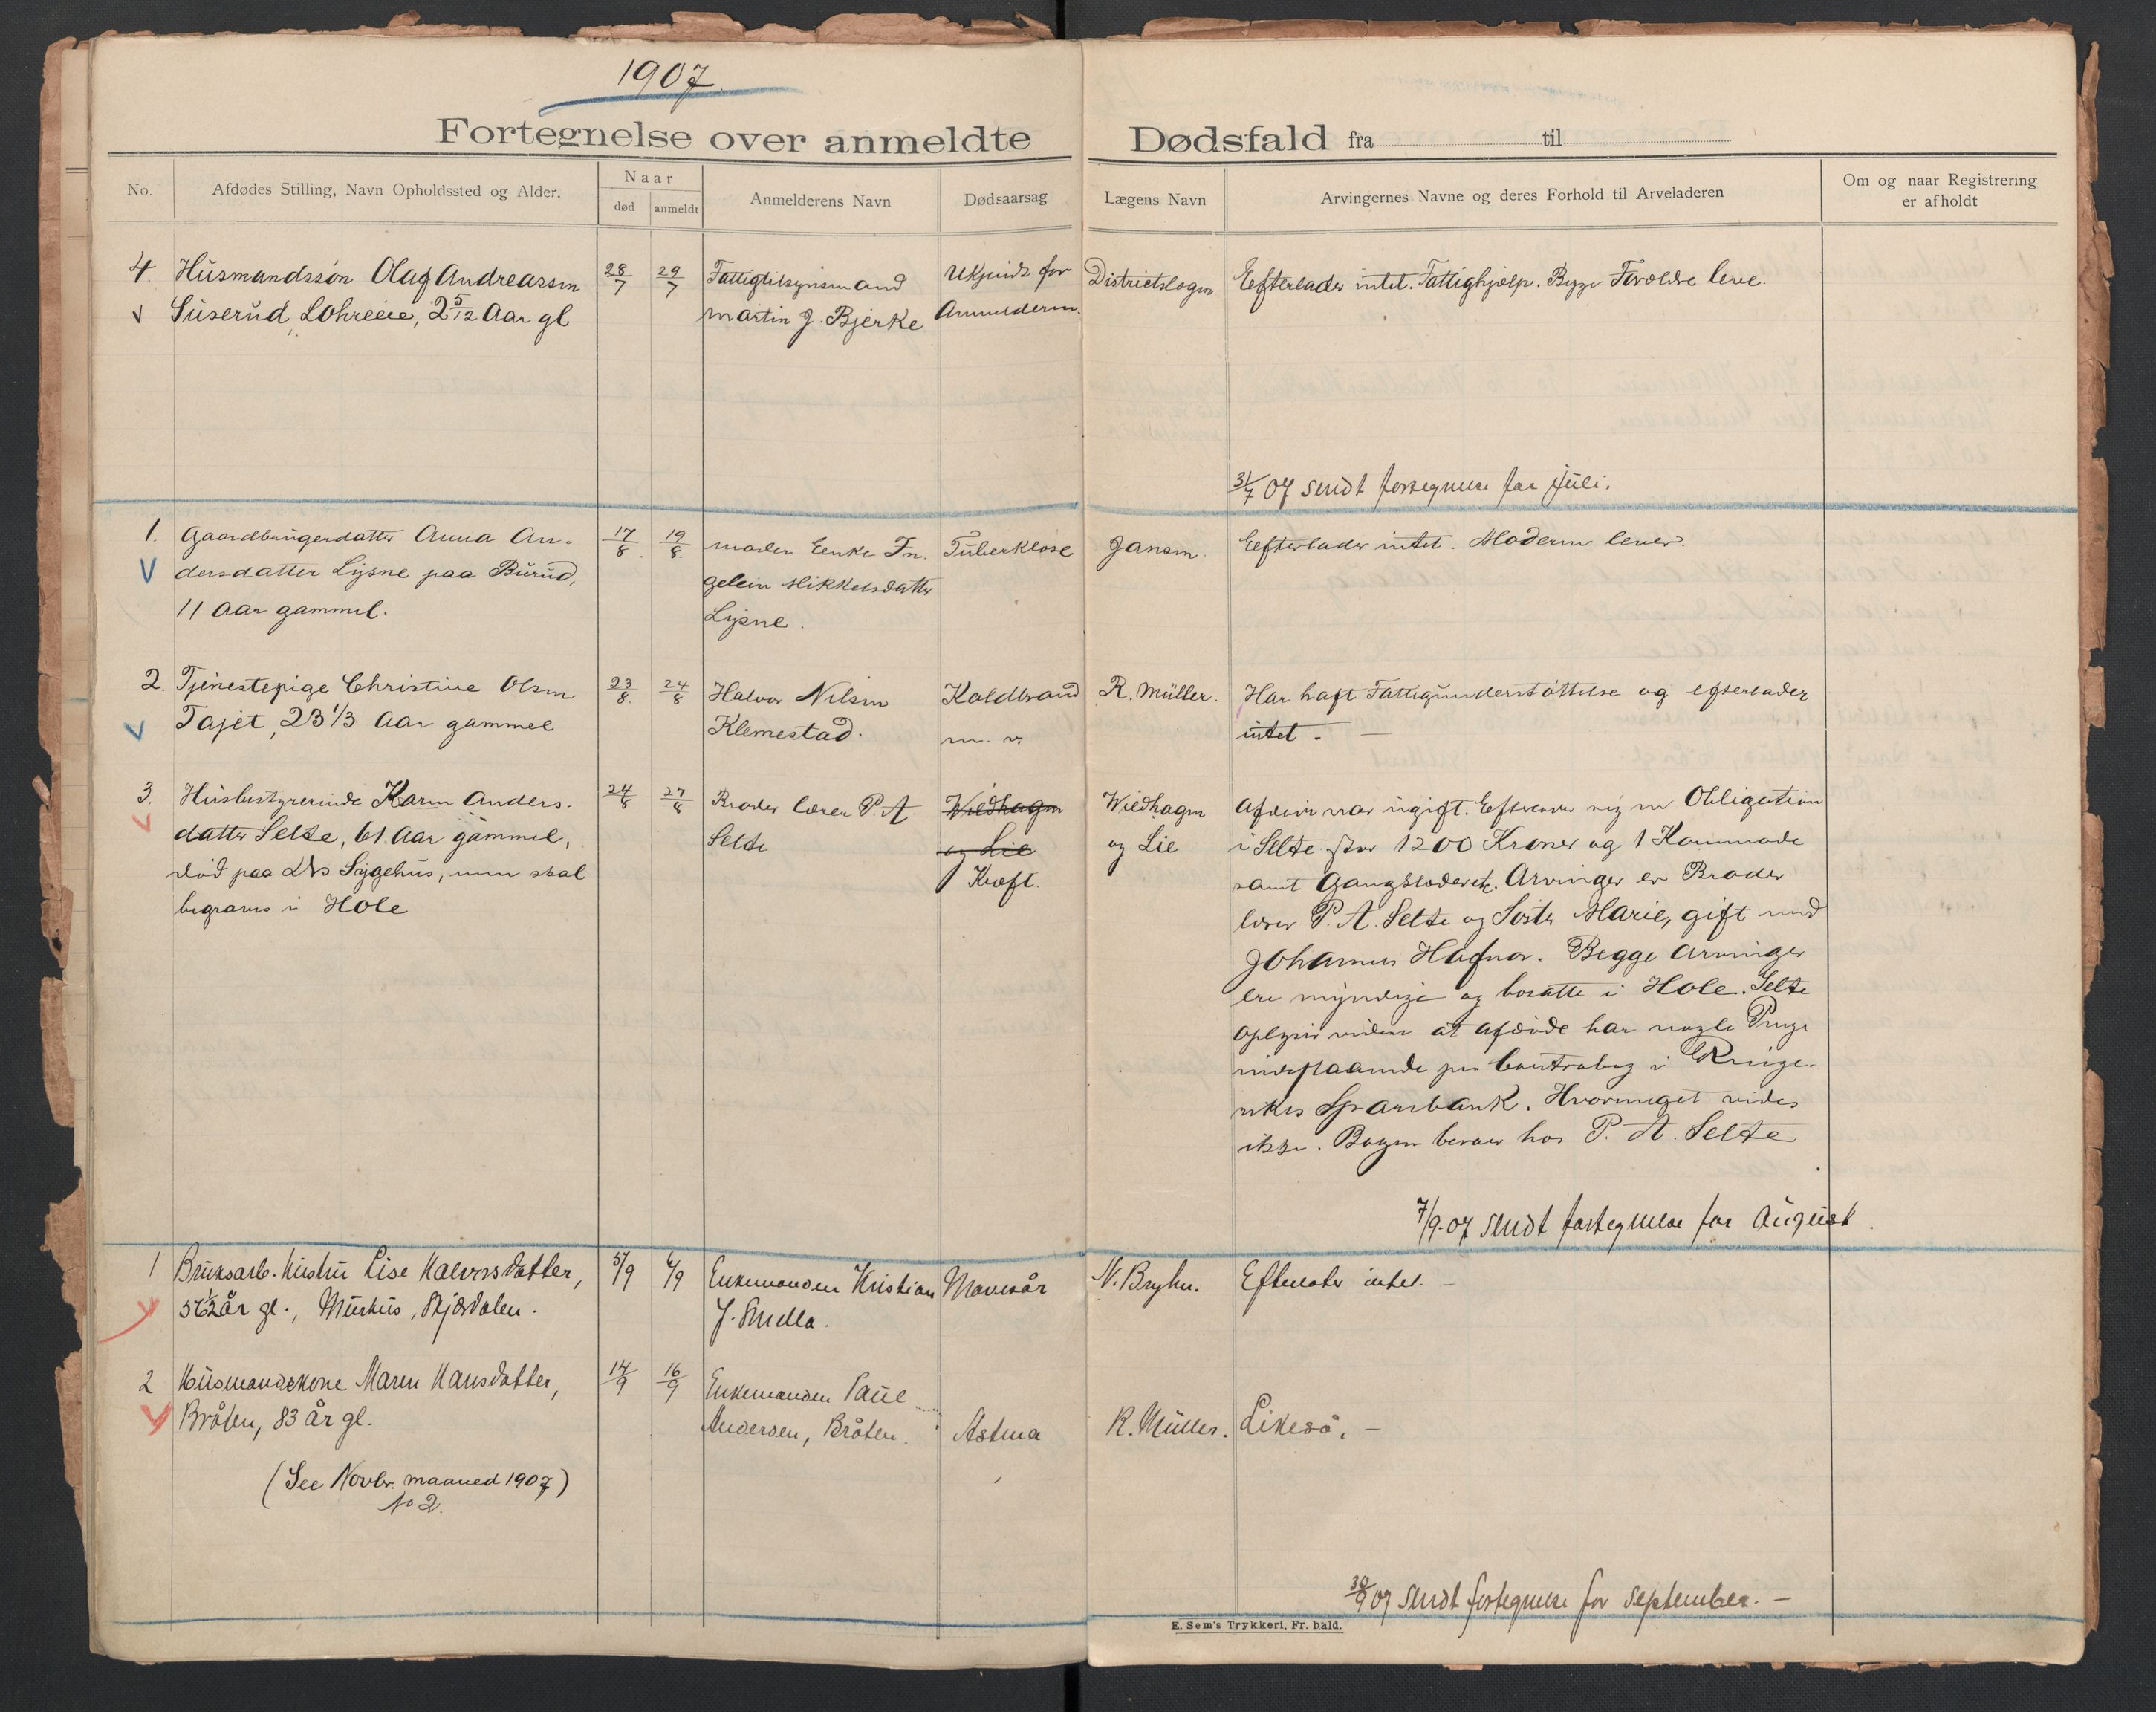 1907.
Fortegnelse over anmeldte Dødsfald fra til
No.
Afdødes Stilling, Navn Opholdssted og Alder.
Naar
død
anmeldt
Anmelderens Navn
Dødsaarsag
Lægens Navn
Arvingernes Navne og deres Forhold til Arveladeren
Om og naar Registrering
er afholdt
4. Husmandssön Olaf Andreassen
Süserüd, Lohreeie, 2 5/12 Aar gl
28/7
29/7
Fattigtilsynsmand
Martin J. Bjerke
Ukjendt for
Anmelderen.
Districtslægen
Efterlader intet. Fattighjælp. Begge Forældre leve.
31/7 07 sendt fortegnelse for Jüli.
1. Gaardbrügerdatter Anna An-
dersdatter Lysne paa Bürüd,
11 Aar gammel.
17/8.
19/8.
moder Enke In-
geleiv Mikkelsdatter
Lysne.
Tüberklose
Jansen.
Efterlader intet. Moderen lever.
2. Tjenestepige Christine Olsen
Tajet, 23 1/3 Aar gammel
23/8.
24/8
Halvor Nilsen
Klemestad.
Koldbrand
m. v.
R. Müller.
Har haft Fattigünderstöttelse og efterlader
intet. —
3. Hüsbestyrerinde Karen Anders-
datter Selte, 61 Aar gammel,
död paa Sygehüs, men skal
begraves i Hole
24/8
27/8
Broder lærer P. A
Selte
Wiedhagen
og Lie
Kræft.
Wiedhagen
og Lie
Afdöde var ügift. Efterlader sig en Obligation
i Selte stor 1200 Kroner og 1 Kommode
samt Gangklæder etc. Arvinger er Broder
lærer P. A. Selte og Söster Marie, gift med
Johannes Hafnor. Begge Arvinger
ere myndige og bosatte i Hole. Selte
oplyser viden at afdöde har nogle Penge
indestaaende pr Contrabog i Ringe-
rikes Sparebank. Hvormeget vides
ikke. Bogen beror hos P. A. Selte
7/9-07 sendt fortegnelse for Aügüst.
1 Brüksarb. hüstrü Lise Halvorsdatter,
56 1/2 år gl., Mürhüs, Skjærdalen.
5/9
6/9
Enkemanden Kristian
J. Smella.
Mavesår
N. Bryhn.
Efterlater intet. —
2 Hüsmandskone Maren Hansdatter,
Bråten, 83 år gl.
14/9
16/9
Enkemanden Paül
Andersen, Bråten.
Astma
R. Müller.
Likeså. —
(See Novbr. maaned 1907)
No 2.
30/9 07 sendt fortegnelse for September. —
E. Sem's Trykkeri, Fr. hald.